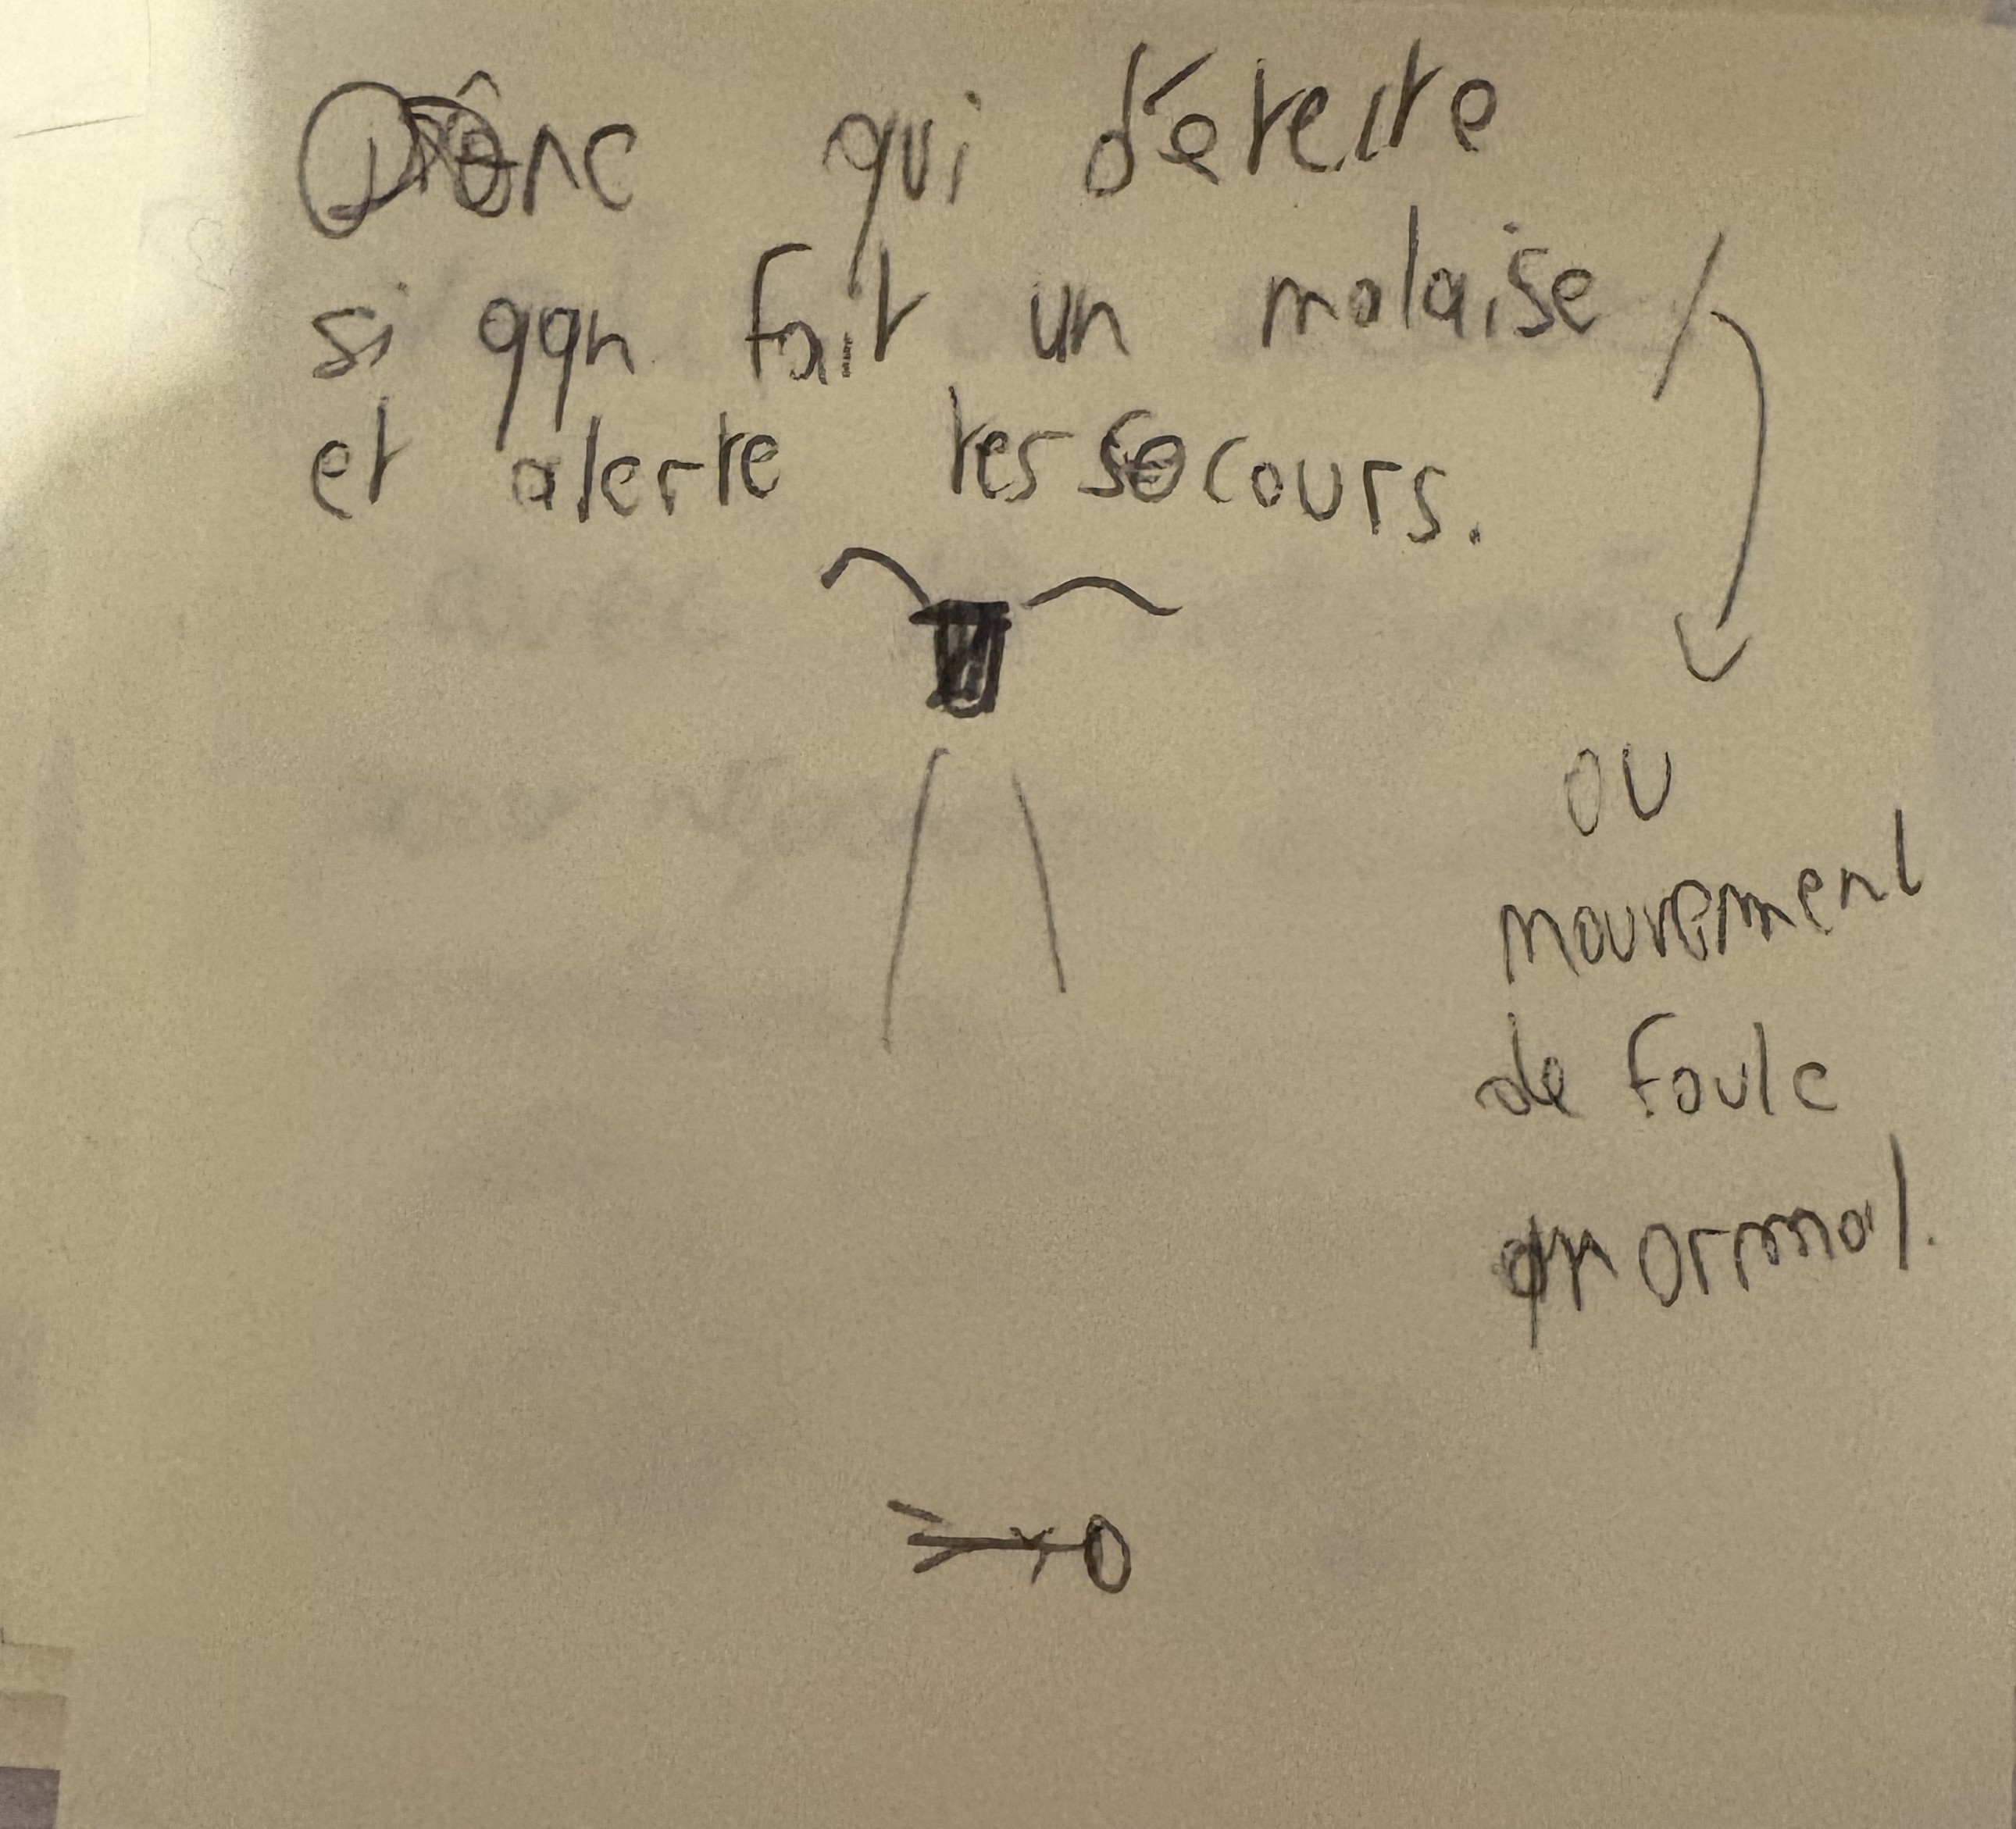 Drône qui détecte
si qqn fait un malaise /
et alerte les secours.
ou
mouvement
de foule
anormal.